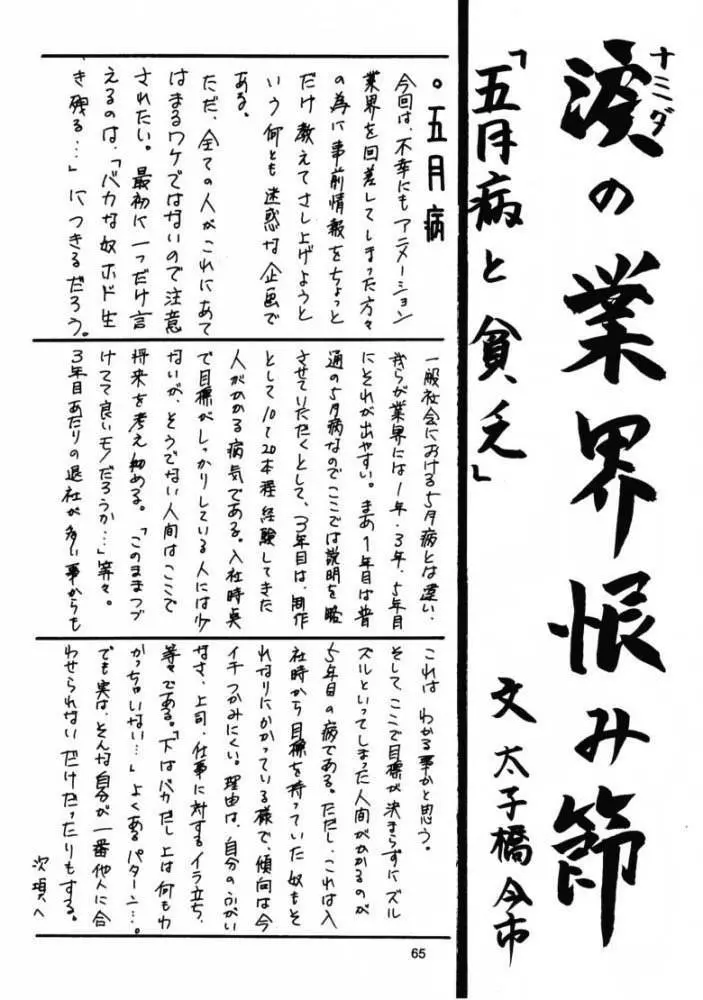 涙の業界恨み節
ナミダ
「五月病と貧乏」
文 太子橋今市
。五月病
今回は、不幸にもアニメーション
業界を回差してしまった方々
の為に事前情報をちょっと
だけ教えてさし上げようと
いう何とも迷惑な企画で
ある。
ただ、全ての人がこれにあて
はまるワケではないので注意
されたい。最初に一つだけ言
えるのは、「バカな奴ホド生
き残る…」につきるだろう。
一般社会における5月病とは違い、
我らが業界には1年・3年、5年目
にそれが出やすい。まあ1年目は普
通の5月病なのでここでは説明を略
させていただくとして、3年目は、制作
として10〜20本程経験してきた
人がかかる病気である。入社時点
で目標がしっかりしている人には少
ないが、そうでない人間はここで
将来を考え始める。「このままつづ
けてて良いモノだろうか…」等々。
3年目あたりの退社が多い事からも
これは わかる事かと思う。
そしてここで目標が決まらずにズル
ズルといってしまった人間がかかるのが
5年目の病である。ただし、これは入
社時から目標を持っていた奴もそ
れなりにかかっている様で、傾向は今
イチつかみにくい。理由は、自分のふがい
なさ、上司、仕事に対するイラ立ち、
等々である。「下はバカだし上は何もわ
かっちゃいない…」よくあるパターン…。
でも実は、そんな自分が一番他人に合
わせられないだけだったりもする。
次項へ
65